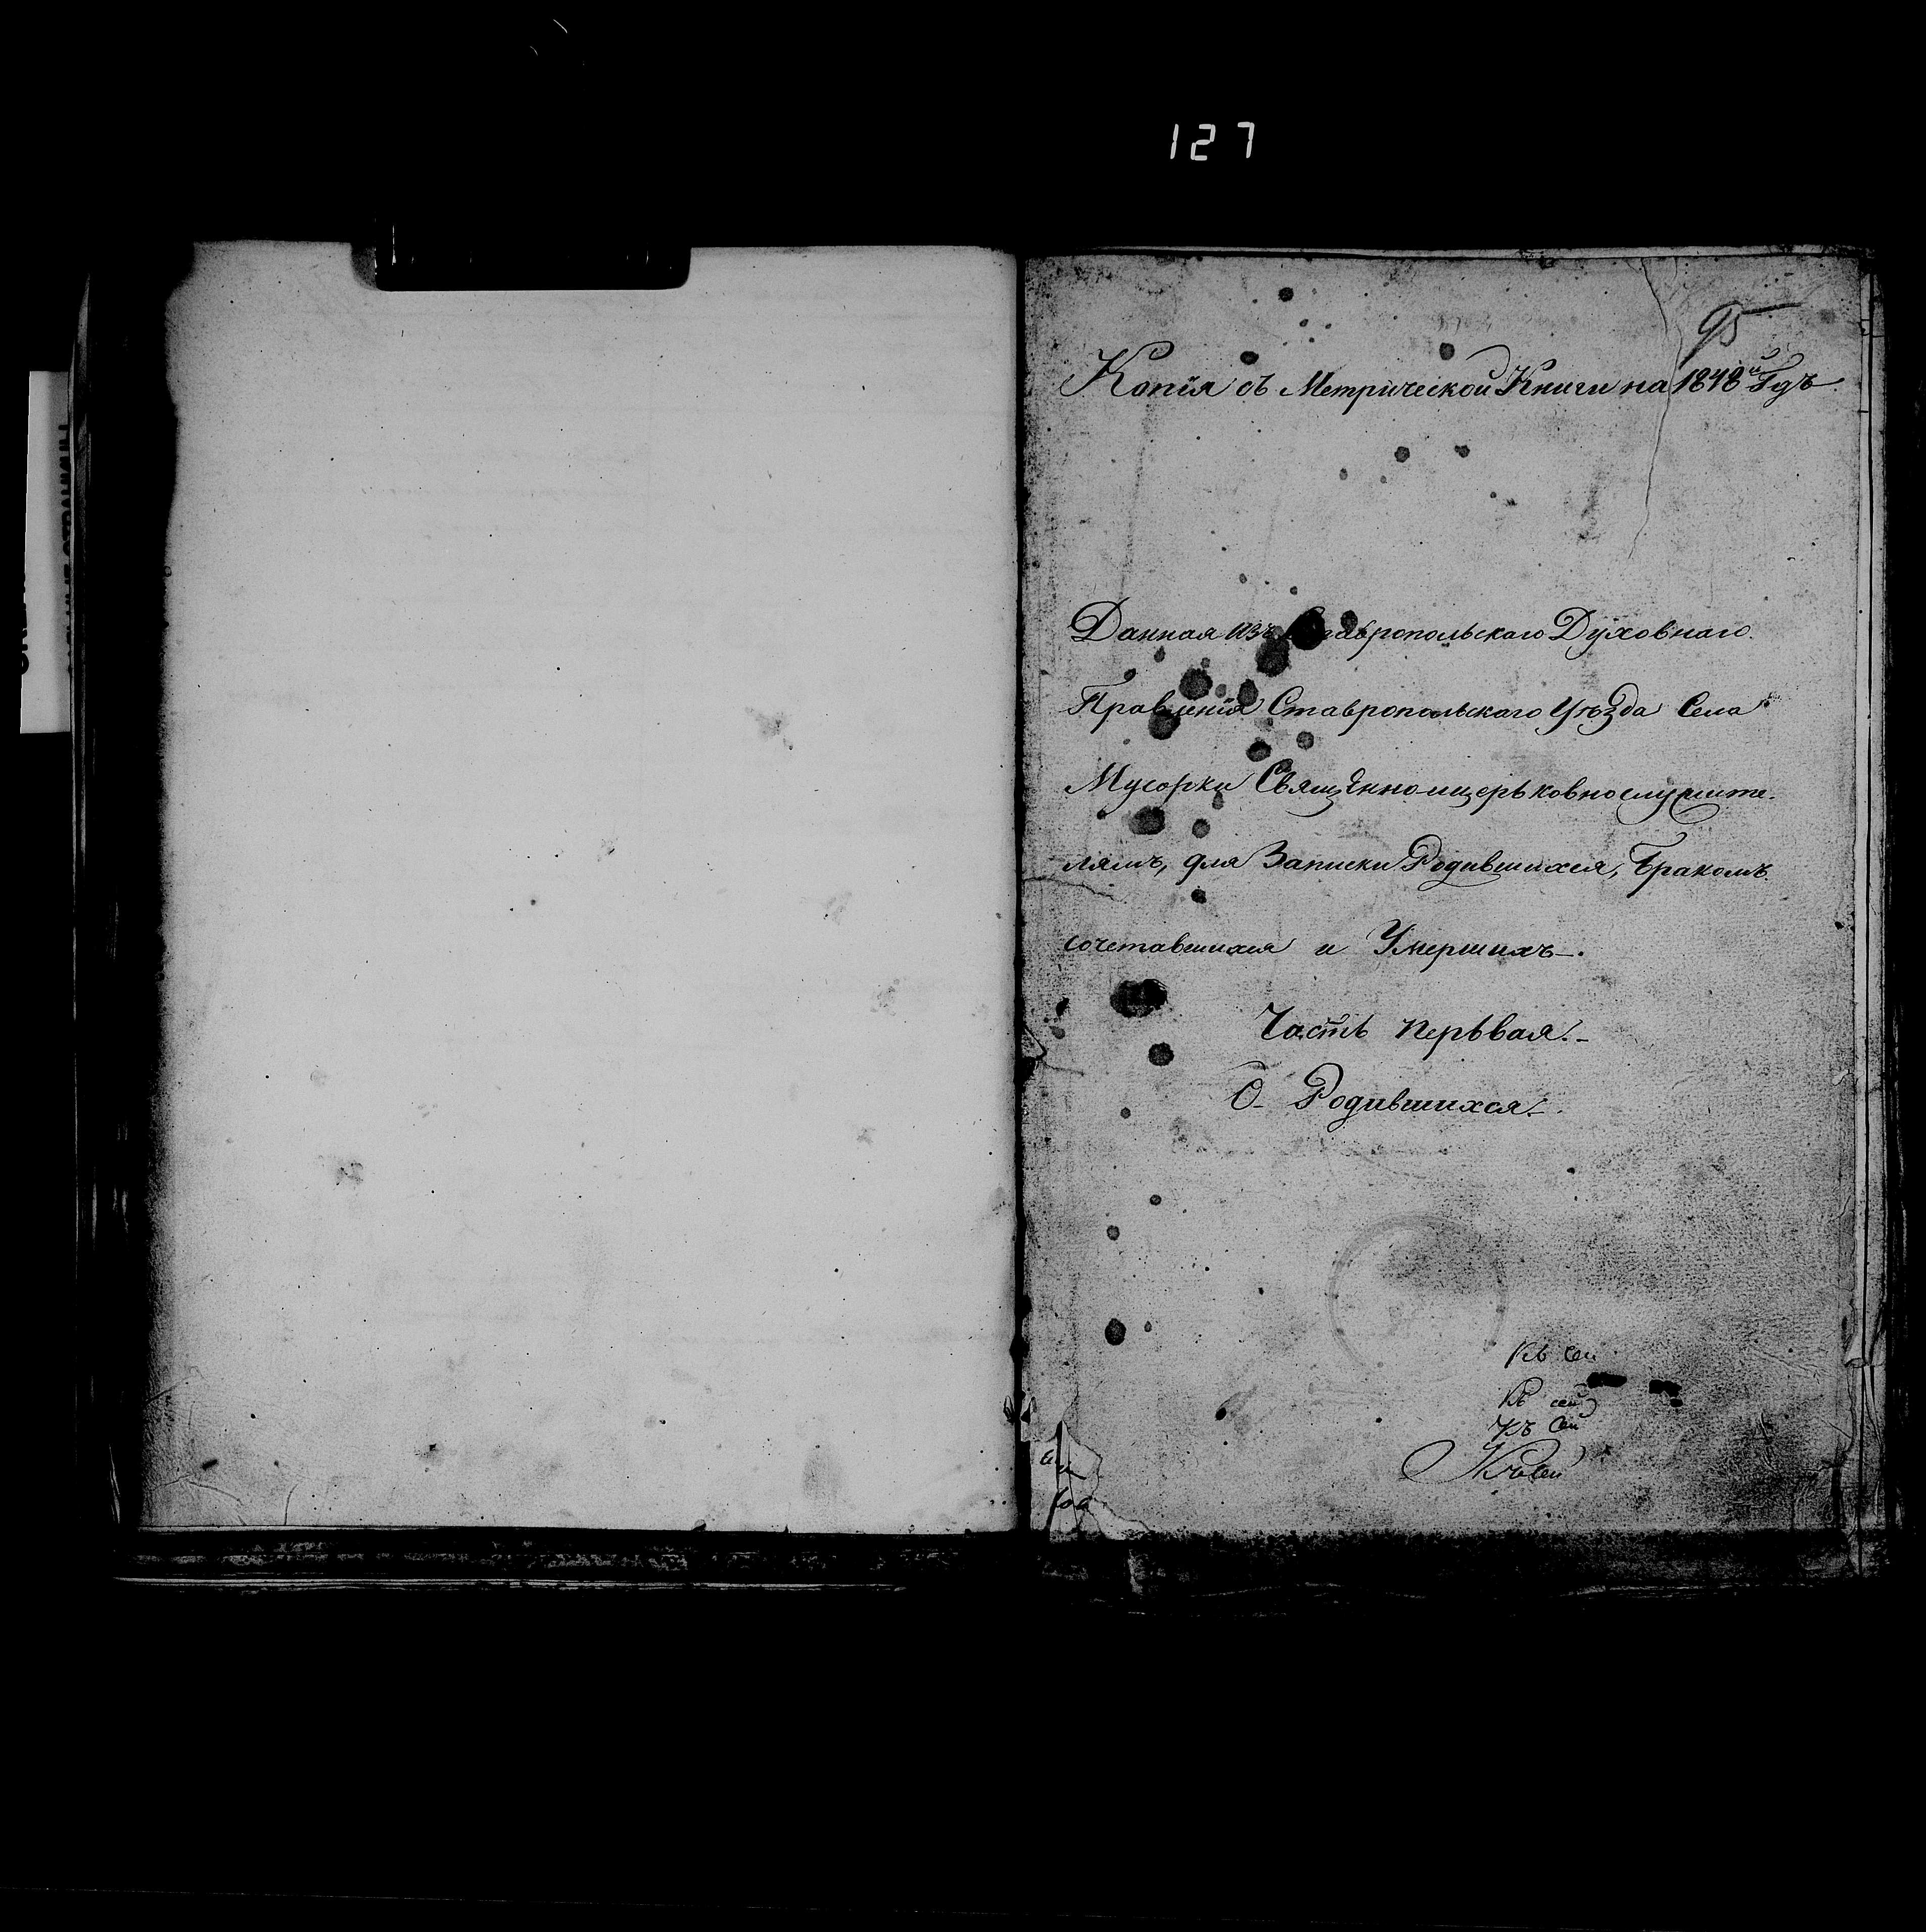 127
95
Копія съ Метрической Книги на 1848й Годъ
Данная изъ Ставропольскаго Духовнаго
Правленія Ставропольскаго Уѣзда Села
Мусорки Священно-церьковнослужите-
лямъ, для Записки Родившихся, Бракомъ
сочетавшихся и Умершихъ.
Часть перьвая.
О Родившихся.
Къ сей
Къ сей
Къ сей
Къ сей